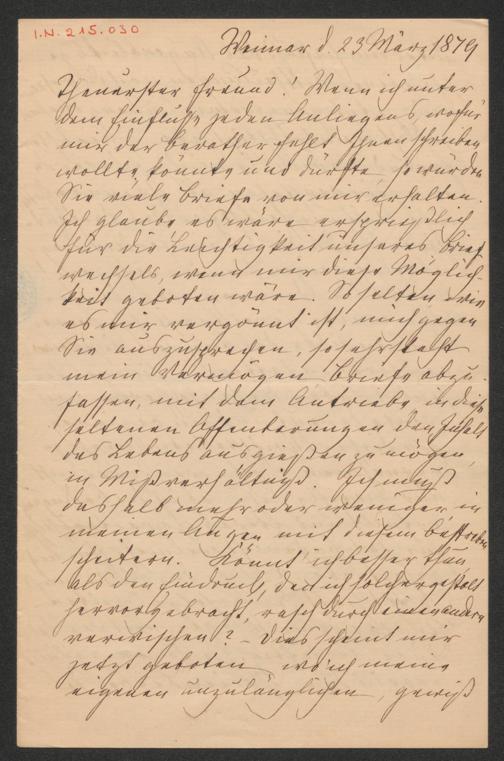 I.N. 215.030
Weimar d. 23 März 1879
Theuerster Freund! Wenn ich unter
dem Einfluße jeden Anliegens, wofür
mir der Berather fehlt Ihnen schreiben
wollte, könnte und dürfte, so würden
Sie viele Briefe von mir erhalten.
Ich glaube es wäre ersprießlich
für die Leichtigkeit unseres Brief
wechsels, wenn mir diese Möglich-
keit geboten wäre. So selten wie
es mir vergönnt ist, mich gegen
Sie auszusprechen, so sehr steht
mein Vermögen Briefe abzu-
fassen, mit dem Antriebe, in diese
seltenen Offenbarungen den Inhalt
des Lebens ausgießen zu mögen,
in Mißverhältniß. Ich muß
deshalb mehr oder weniger in
meinen Augen mit diesem Bestreben
scheitern. Könnt' ich besser thun,
als den Eindruck, den ich solchergestalt
hervorgebracht, rasch durch einen andern
verwischen? – Dies scheint mir
jetzt geboten, wo ich meine
eigenen unzulänglichen, gewiß